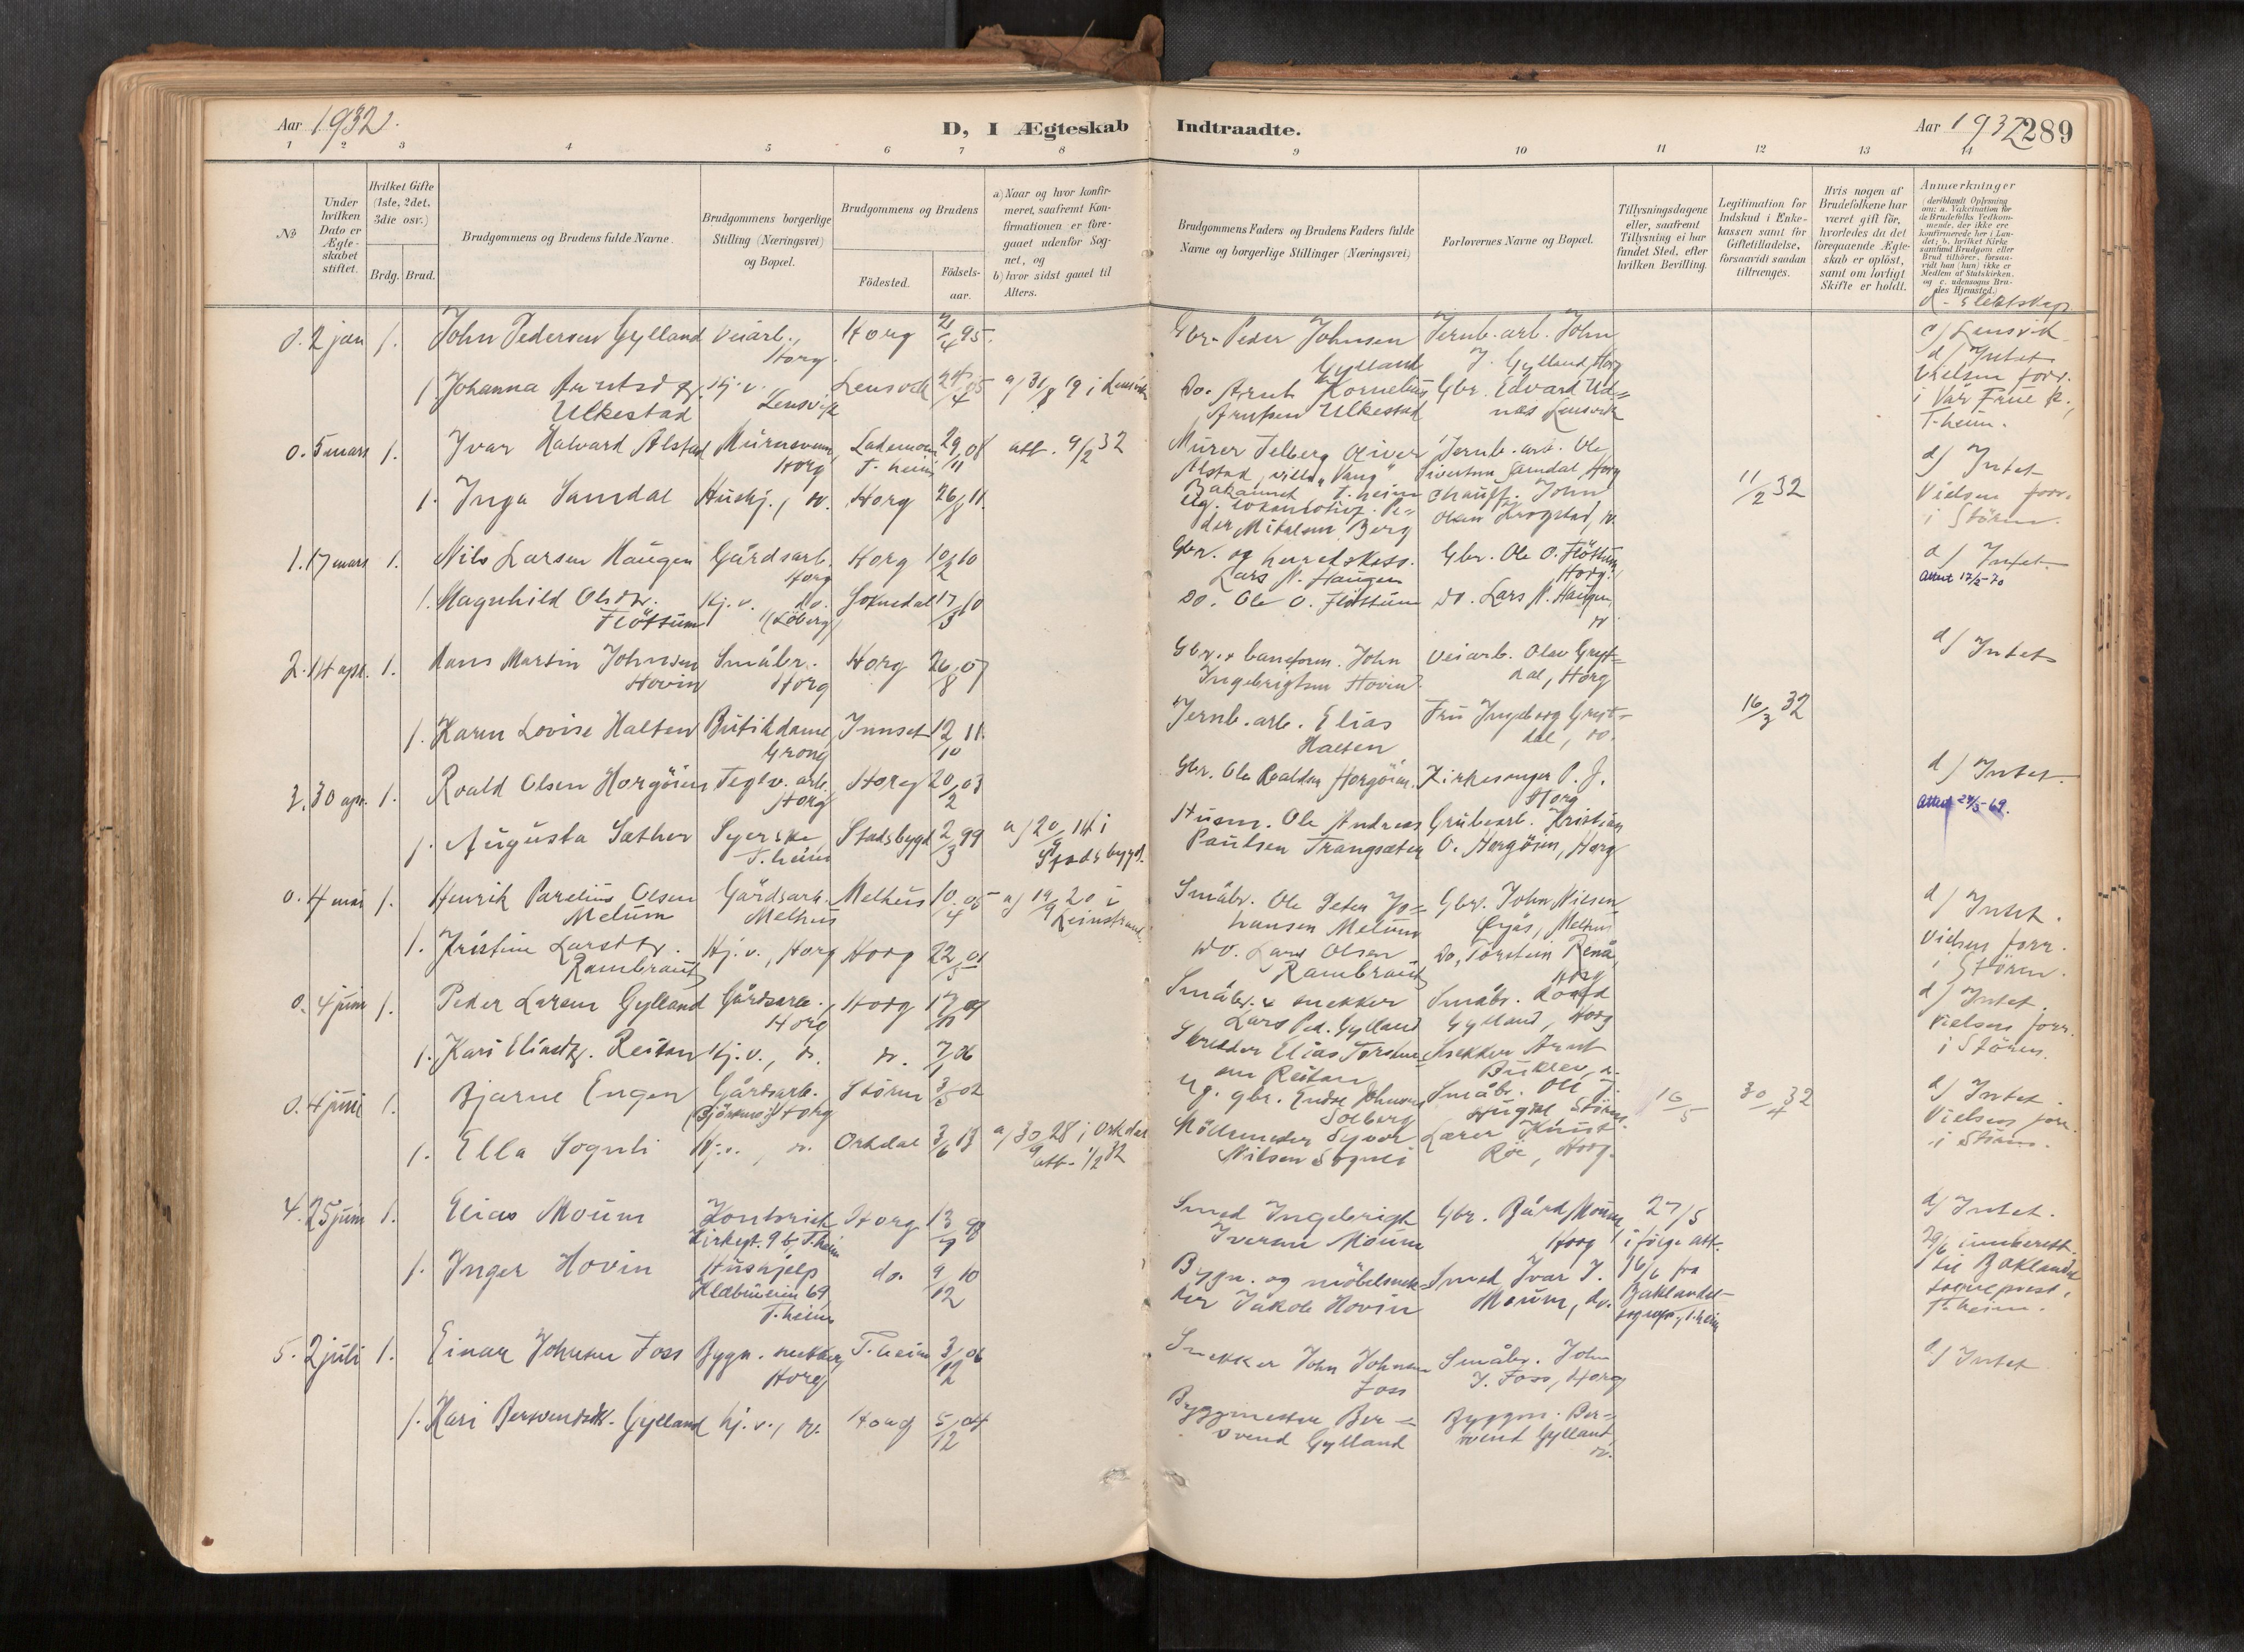 Aar 1932.
D, I Ægteskab Indtraadte.
Aar 1932
289
1 2 3 4 5 6 7 8 9 10 11 12 13 14
No
Under hvilken Dato er Ægteskabet stiftet.
Hvilket Gifte (1ste, 2det, 3die osv.)
Brdg. Brud.
Brudgommens og Brudens fulde Navne.
Brudgommens borgerlige Stilling (Næringsvei) og Bopæl.
Brudgommens og Brudens
Födested.
Födselsaar.
a) Naar og hvor konfirmeret, saafremt Konfirmationen er foregaaet udenfor Sognet, og
b) hvor sidst gaaet til Alters.
Brudgommens Faders og Brudens Faders fulde Navne og borgerlige Stillinger (Næringsvei)
Forlovernes Navne og Bopæl.
Tillysningsdagene eller, saafremt Tillysning ei har fundet Sted, efter hvilken Bevilling.
Legitimation for Indskud i Enkekassen samt for Giftetilladelse, forsaavidt saadan tiltrænges.
Hvis nogen af Brudefolkene har været gift för, hvorledes da det foregaaende Ægteskab er oplöst, samt om lovligt Skifte er holdt.
Anmærkninger
(deriblandt Oplysning om: a. Vakcination for de Brudefolks Vedkommende, der ikke ere konfirmerede her i Landet; b. hvilket Kirkesamfund Brudgom eller Brud tilhörer, forsaavidt han (hun) ikke er Medlem af Statskirken, og c. udensogns Brudes Hjemsted.)
d - Slektskap
0. 2 jan 1. John Pedersen Gylland Veiarb., Horg. Horg 21/4 95. Gbr. Peder Johnsen Gylland Jernb. arb. John J. Gylland, Horg c) Lensvik d) Intet
1. Johanna Arntsdtr. Ulkestad Hj. v. Lensvik Lensvik 24/4 05 a) 31/8 19 i Lensvik Do. Arnt Kornelius Arntsen Ulkestad Gbr. Edvard Udnæs Lensvik Vielsen forr. i Vår Frue k., T.heim.
0. 5 mars 1. Ivar Halvard Alstad Murersvenn, Horg Lademoen T. heim 29/11 08 att. 9/2 32 Murer Telberg Oliver Alstad, villa "Vang" Bakaunet T. heim Jernb. arb. Ole Sivertsen Samdal, Horg 11/2 32 d) Intet
1. Inga Samdal Hushj., do. Horg 26/8 11. der Mikalsen Berg Chauff. John Olsen Krogstad, do. Vielsen forr. i Stören.
1. 17 mars 1. Nils Larsen Haugen Gårdsarb. Horg Horg 10/2 10 Gbr. og herredskass. Lars N. Haugen Gbr. Ole O. Flöttum Horg. d) Intet. Attest 17/2-70
1. Magnhild Olsdtr. Flöttum Hj. v. do. (Löberg) Soknedal 17/3 10 Do. Ole O. Flöttum Do. Lars N. Haugen, do.
2. 14 apr. 1. Hans Martin Johnsen Hovin Småbr. Horg Horg 26/8 07 Gbr. & baneform. John Ingebrigtsen Hovin Veiarb. Olav Grytdal, Horg d) Intet
1. Karen Lovise Halten Butikdame Grong Innset 12/10 11. Jernb. arb. Elias Halten Fru Ingeborg Grytdal, do. 16/3 32
3. 30 apr. 1. Roald Olsen Horgöien Teglv. arb. Horg Horg 20/2 03 Gbr. Ole Roaldsen Horgöien. Kirkesanger P. J. Horg d) Intet. Attest 24/5-62.
1. Augusta Sæther Syerske T. heim Stadsbygd 2/3 99 a) 20/9 14 i Stadsbygd. Husm. Ole Andreas Paulsen Trangsæter Grubearb. Kristian O. Horgöien, Horg
0. 4 mai 1. Henrik Parelius Olsen Melum Gårdsarb. Melhus Melhus 10/4 05 a) 19/9 20 i Leinstrand. Småbr. Ole Peter Johansen Melum Gbr. John Nilsen Öyås, Melhus d) Intet.
1. Kristine Larsdtr. Rambraut Hj. v., Horg Horg 22/5 01 Do. Lars Olsen Rambraut Do. Torstein Renå, Horg Vielsen forr. i Stören.
0. 4 juni 1. Peder Larsen Gylland Gårdsarb., Horg Horg Småbr. & snekker Lars Ped. Gylland Småbr. Gylland, Horg d) Intet. Vielsen forr. i Stören.
1. Kari Eliasdtr. Reitan Hj. v., do. do. 7/1 06 Skredder Elias Reitan Snekker Arnt
0. 4 juni 1. Bjarne Engen Gårdsarb. Horg Stören 3/5 02 Ug. gbr. Endre Johnsen Solberg Småbr. Ole J. Stören. 16/5 30/4 32 d) Intet. Vielsen forr. i Stören.
1. Ella Sognli Hj. v., do. Orkdal 3/6 13 a) 30/9 28 i Orkdal att. 1/2 32 Nilsen Sognli Lærer Knut Röe, Horg.
4. 25 juni 1. Elias Moum Kirkegt. 9 b, T.heim Horg 13/9 98 Smed Ingebrigt Iversen Moum Gbr. Bård Moum, Horg 27/5 i følge att. 16/6 fra Baklandet sognepr., T.heim d) Intet. 29/6 innberett. til Baklandet sogneprest, T.heim.
1. Inger Hovin Hushjelp Klæbuveien 69 T.heim do. 9/12 10 Bygn. og möbelsnekker Jakob Hovin Smed Ivar I. Moum, do.
5. 2 juli 1. Einar Johnsen Foss Bygn. snekker, Horg T.heim 3/12 06 Snekker John Johnsen Foss Småbr. John J. Foss, Horg d) Intet
1. Kari Bersvendsdtr. Gylland hj. v., do. Horg 5/12 04 Byggmester Bersvend Gylland Byggm. Bersvend Gylland, do.